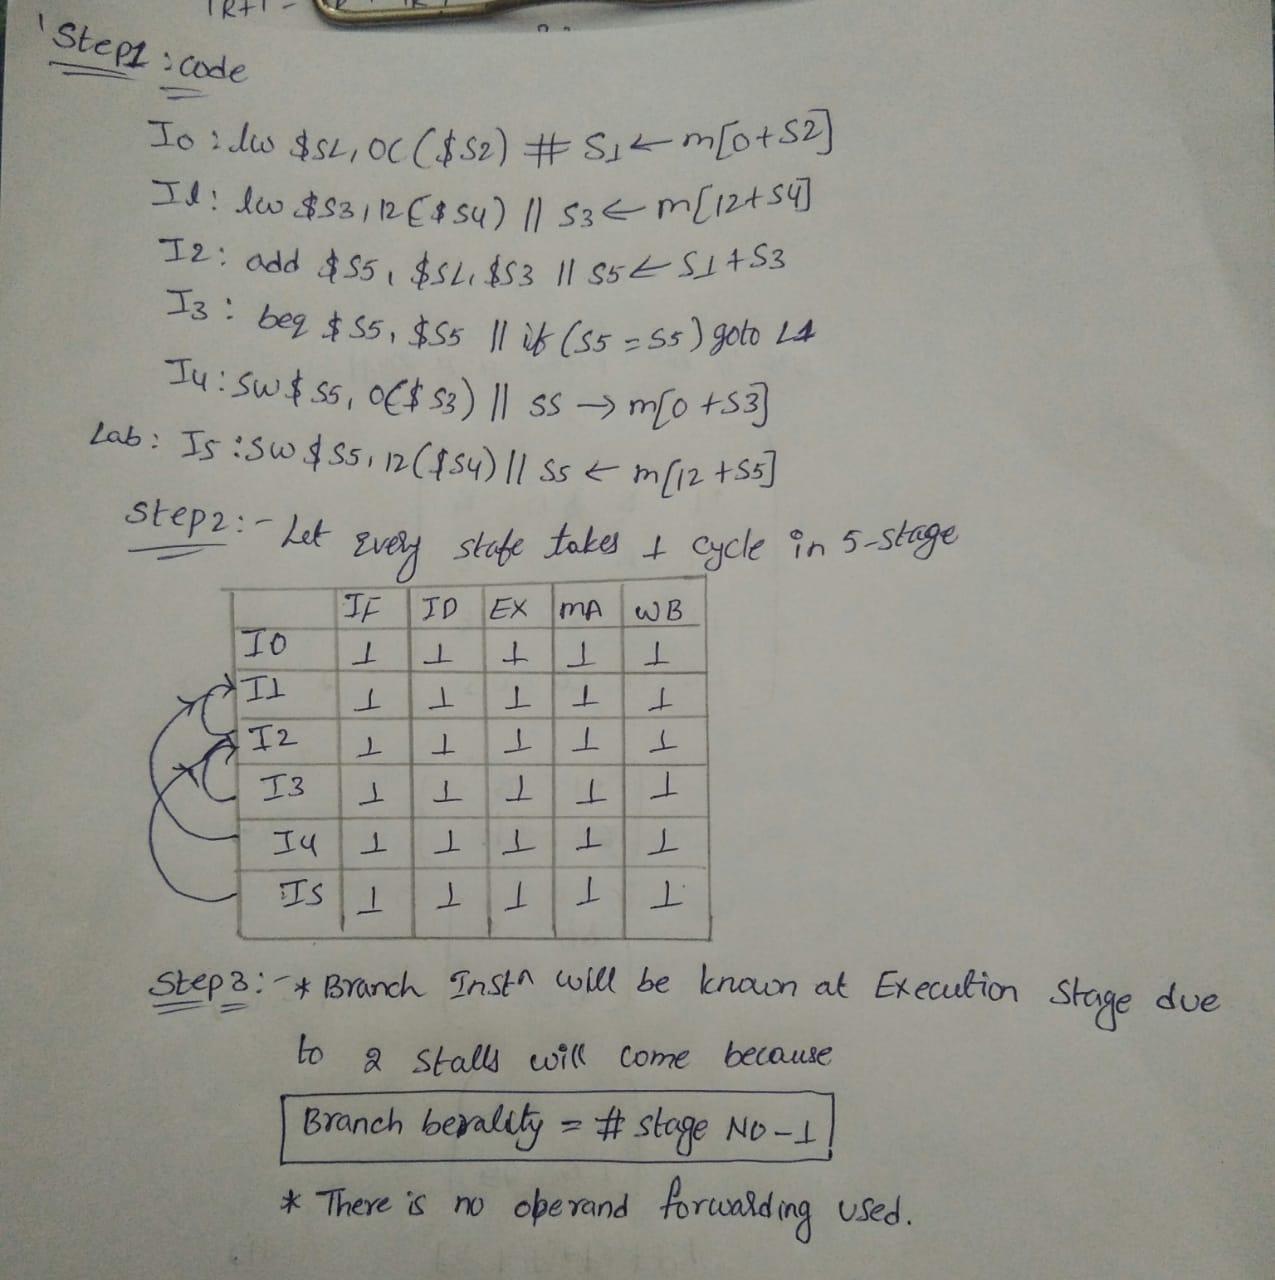 Step1 : code
I0 : lw $S1, 0( ($S2) # S1 ← m[0+S2]
I1 : lw $S3, 12($S4) || S3 ← m[12+S4]
I2 : add $S5, $S1, $S3 || S5 ← S1 + S3
I3 : beq $S5, $S5 || if (S5 = S5) goto L1
I4 : SW $ S5, 0($ S3) || S5 → m[0 +S3]
Lab : I5 : SW $ S5, 12($S4) || S5 ← m[12 +S5]
Step2:- Let Every state takes 1 cycle in 5-stage
IF ID EX MA WB
I0 1 1 1 1 1
I1 1 1 1 1 1
I2 1 1 1 1 1
I3 1 1 1 1 1
I4 1 1 1 1 1
I5 1 1 1 1 1
Step3:- * Branch Instn will be known at Execution Stage due
to 2 Stalls will come because
Branch = # stage NO - 1
* There is no operand forwarding used.